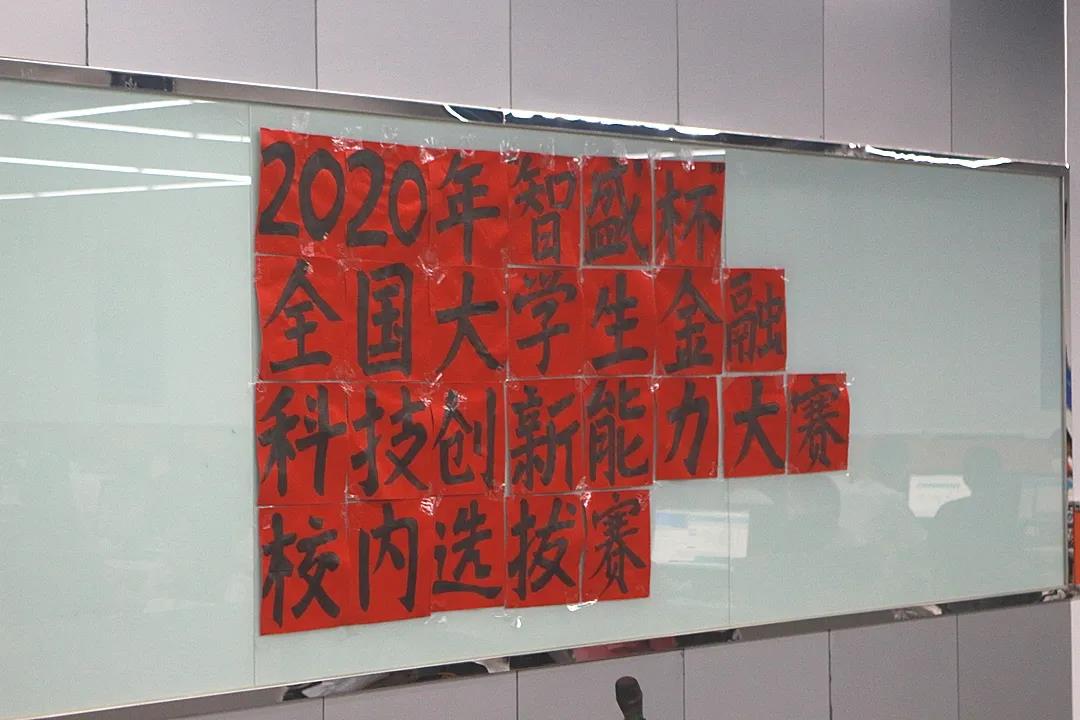 2020年智盛杯"
全国大学生金融
科技创新能力大赛
校内选拔赛